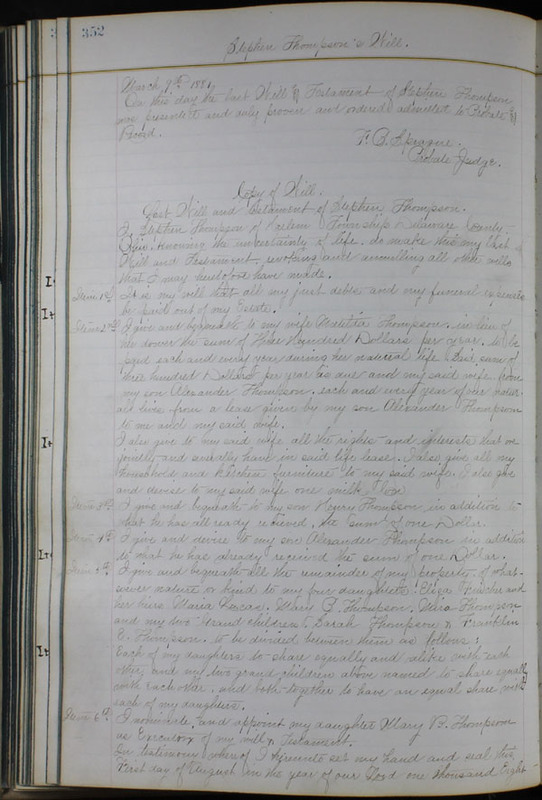 352
Stephen Thompson's Will.
March 9th 1881,
On this day the Last Will & Testament of Stephen Thompson
was presented and duly proven and ordered admitted to Probate &
Record.
F. B. Sprague.
Probate Judge.
Copy of Will.
Last Will and Testament of Stephen Thompson.
I, Stephen Thompson of Township County
Ohio. Knowing the uncertainty of life. do make this my last
Will and Testament, revoking and annulling all other wills
that I may heretofore have made.
Item 1st It is my will that all my just debts and my funeral expenses
be paid out of my Estate.
Item 2nd I give and bequeath to my wife Thompson. in lieu of
her dower the sum of Three Hundred Dollars per year. to be
paid each and every year during her natural life. Said sum of
three hundred Dollars per year is due and my said wife from
my son Alexander Thompson. each and every year of our natur-
al lives from a lease given by my son Alexander Thompson
to me and my said wife.
I also give to my said wife all the rights and interests that we
jointly and severally have in said life lease. I also give all my
household and kitchen furniture to my said wife. I also give
and devise to my said wife one milk Cow
Item 3rd I give and bequeath to my son Henry Thompson in addition to
what he has all ready received, the sum of one Dollar.
Item 4th I give and devise to my son Alexander Thompson in addition
to what he has already received the sum of one Dollar.
Item 5th I give and bequeath all the remainder of my property. of what-
soever nature or kind to my four daughters. Eliza and
her heirs Maria Mary B. Thompson. Thompson
and my two Grand children, Sarah Thompson & Franklin
E. Thompson. to be divided between them as follows;
Each of my daughters to share equally and alike with each
other, and my two grand children above named to share equally
with each other, and both together to have an equal share with
each of my daughters.
Item 6th I nominate, and appoint my daughter Mary B. Thompson
as Executor of my will & Testament.
In testimony whereof I hereunto set my hand and seal this
First day of August in the year of our Lord one thousand Eight
It
It
It
It
It